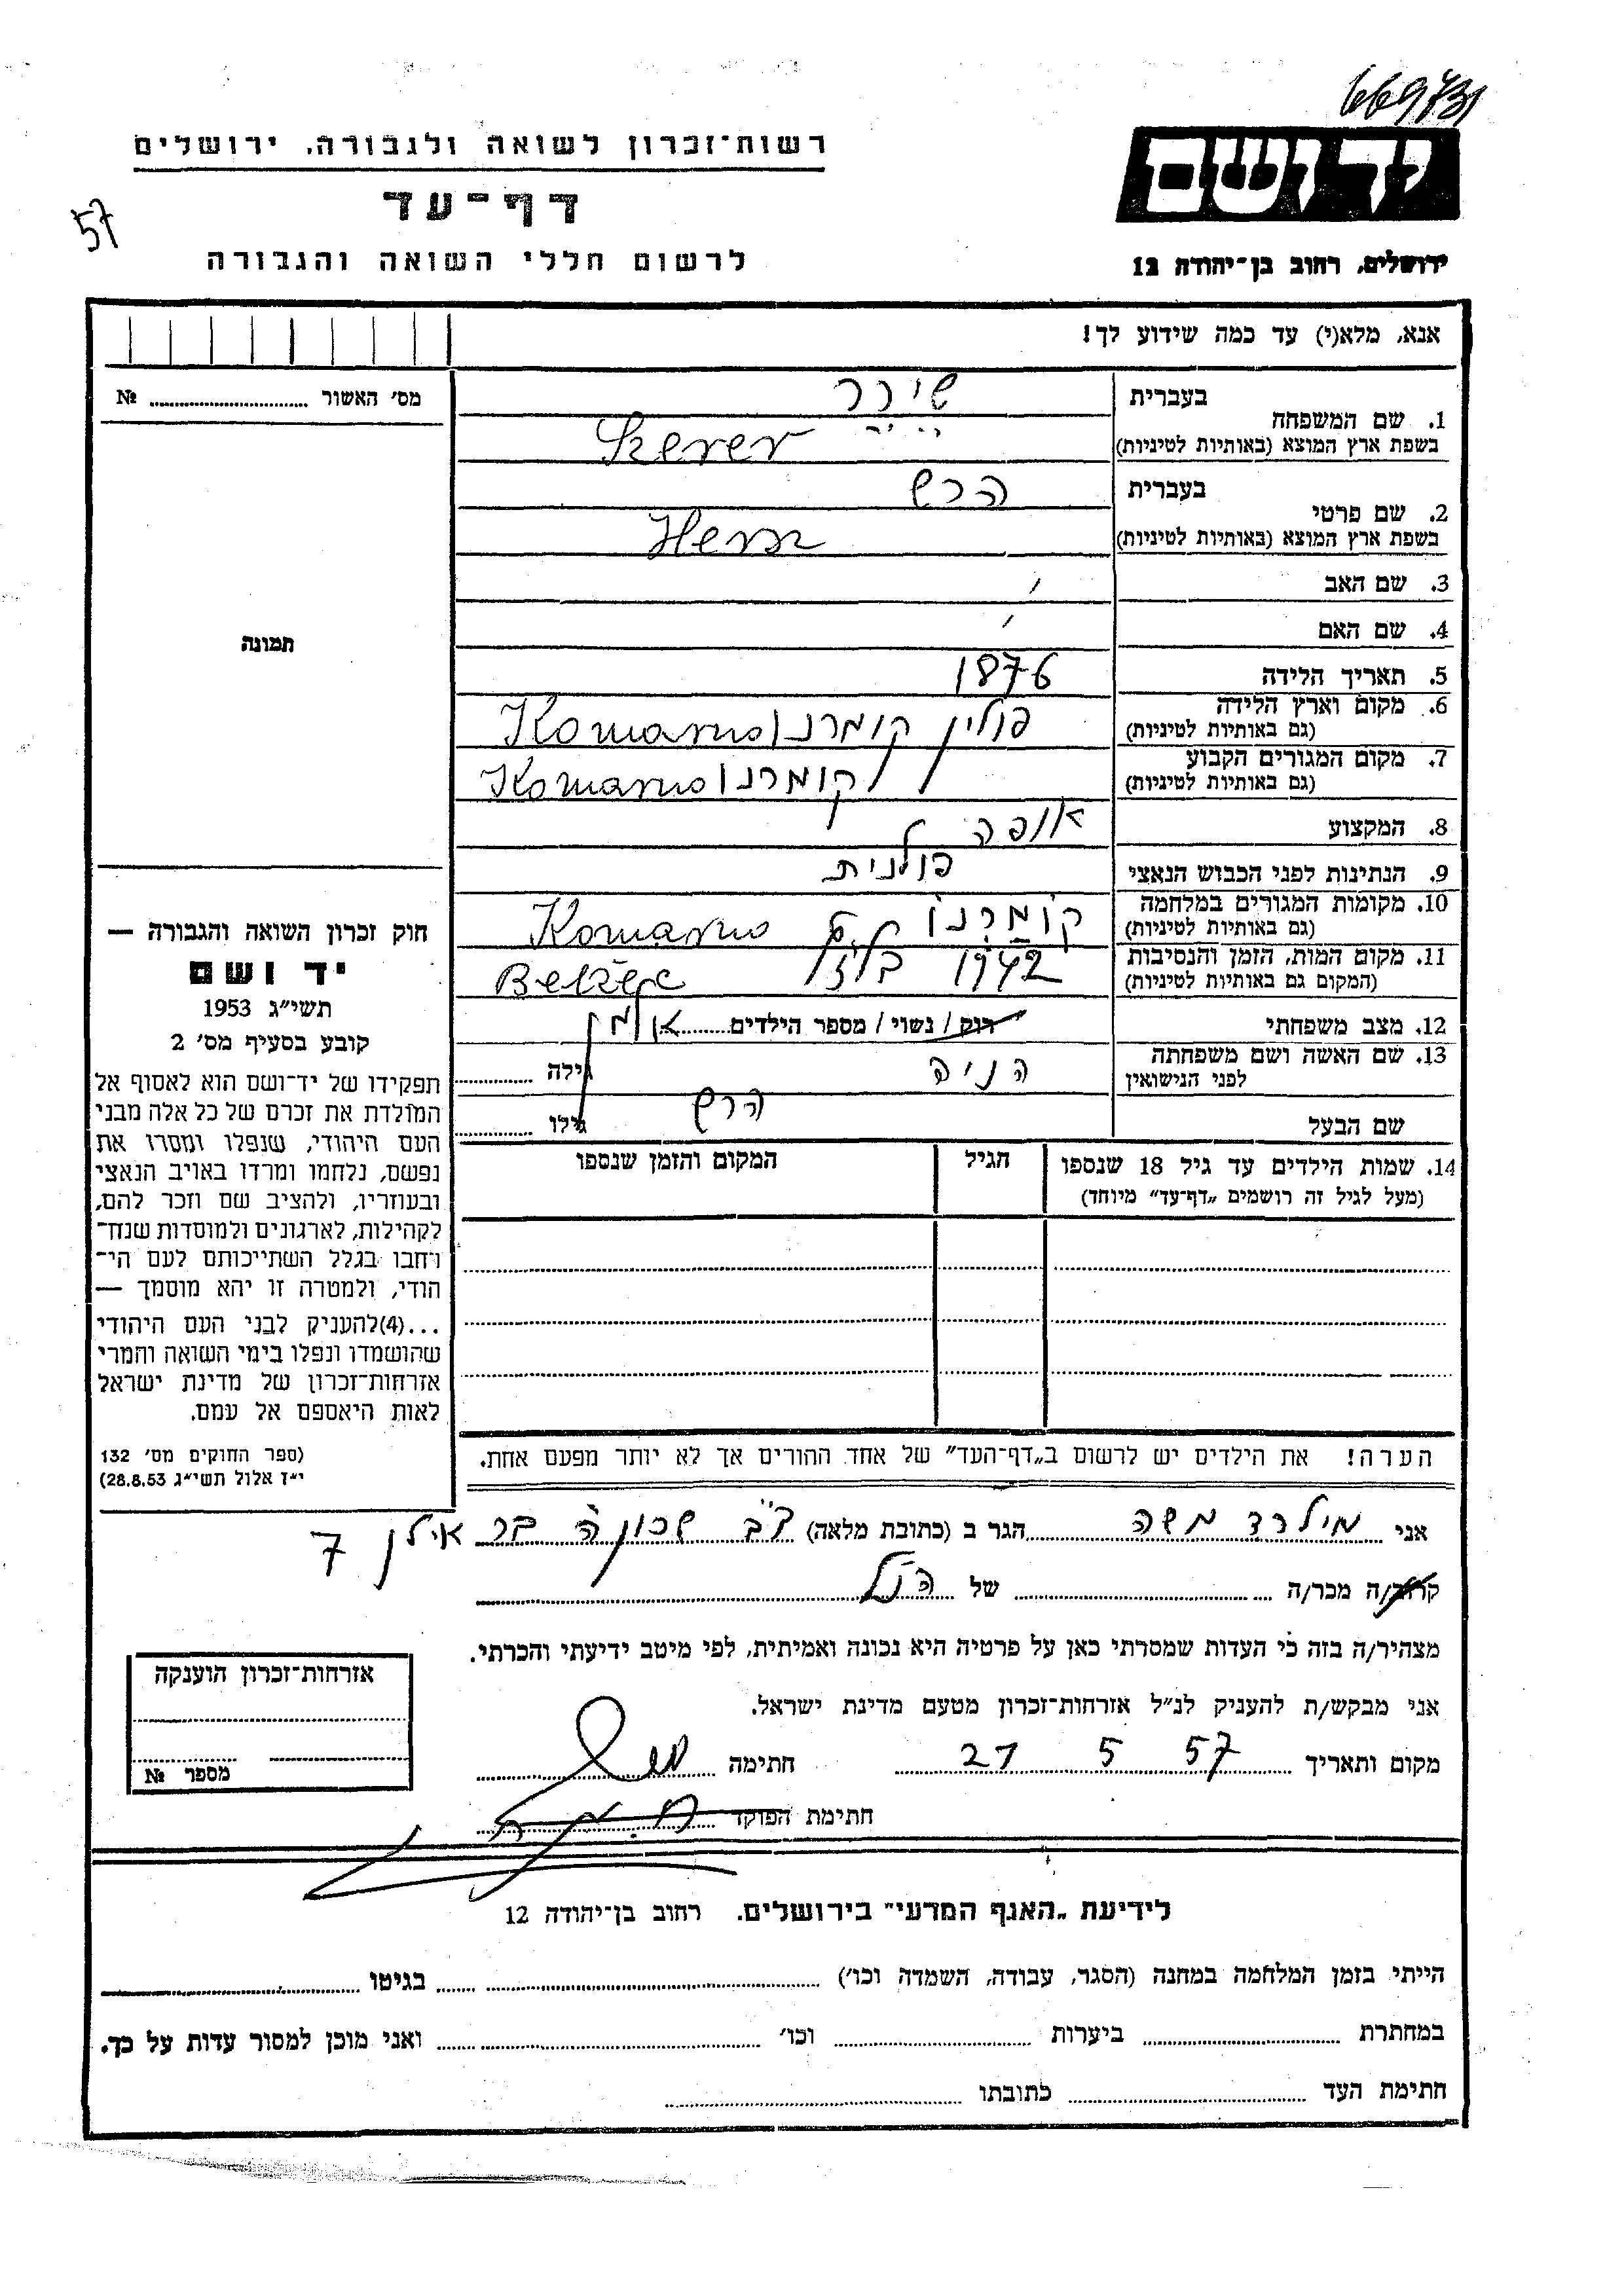 669731
רשות־זכרון לשואה ולגבורה, ירושלים
דף־עד
לרשום חללי השואה והגבורה
57
יד ושם
ירושלים, רחוב בן־יהודה 12
אנא, מלא(י) עד כמה שידוע לך!
מס׳ האשור № 
תמונה
בעברית
1. שם המשפחה
שירר
בשפת ארץ המוצא (באותיות לטיניות)
Szerer
בעברית
2. שם פרטי
הרש
בשפת ארץ המוצא (באותיות לטיניות)
Hersz
3. שם האב
4. שם האם
5. תאריך הלידה 1876
6. מקום וארץ הלידה פולין קומרנו Komarno
(גם באותיות לטיניות)
7. מקום המגורים הקבוע קומרנו Komarno
(גם באותיות לטיניות)
8. המקצוע אופה
9. הנתינות לפני הכבוש הנאצי פולנית
10. מקומות המגורים במלחמה קומרנו Komarno
(גם באותיות לטיניות)
11. מקום המות, הזמן והנסיבות 1942 Belzec
(המקום גם באותיות לטיניות)
12. מצב משפחתי רוק / נשוי / מספר הילדים אלמן
13. שם האשה ושם משפחתה הניה גילה
לפני הנישואין
שם הבעל הרש גילו
14. שמות הילדים עד גיל 18 שנספו הגיל המקום והזמן שנספו
(מעל לגיל זה רושמים „דף־עד״ מיוחד)
הערה! את הילדים יש לרשום ב„דף־העד״ של אחד ההורים אך לא יותר מפעם אחת.
חוק זכרון השואה והגבורה —
יד ושם
תשי״ג 1953
קובע בסעיף מס׳ 2
תפקידו של יד־ושם הוא לאסוף אל
המולדת את זכרם של כל אלה מבני
העם היהודי, שנפלו ומסרו את
נפשם, נלחמו ומרדו באויב הנאצי
ובעוזריו, ולהציב שם וזכר להם,
לקהילות, לארגונים ולמוסדות שנח־
רחבו בגלל השתייכותם לעם הי־
הודי, ולמטרה זו יהא מוסמך —
...(4)להעניק לבני העם היהודי
שהושמדו ונפלו בימי השואה והמרי
אזרחות־זכרון של מדינת ישראל
לאות היאספם אל עמם.
(ספר החוקים מס׳ 132
י״ז אלול תשי״ג 28.8.53)
אני מילרד משה הגר ב (כתובת מלאה) שכונה בר אילן 7
קרוב/ה מכר/ה של הנ״ל
מצהיר/ה בזה כי העדות שמסרתי כאן על פרטיה היא נכונה ואמיתית, לפי מיטב ידיעתי והכרתי.
אני מבקש/ת להעניק לנ״ל אזרחות־זכרון מטעם מדינת ישראל.
מקום ותאריך 21 5 57 חתימה
חתימת הפוקד
אזרחות־זכרון הוענקה
מספר №
לידיעת „האגף המדעי״ בירושלים, רחוב בן־יהודה 12
הייתי בזמן המלחמה במחנה (הסגר, עבודה, השמדה וכו׳) בגיטו
במחתרת ביערות וכו׳ ואני מוכן למסור עדות על כך.
חתימת העד כתובתו